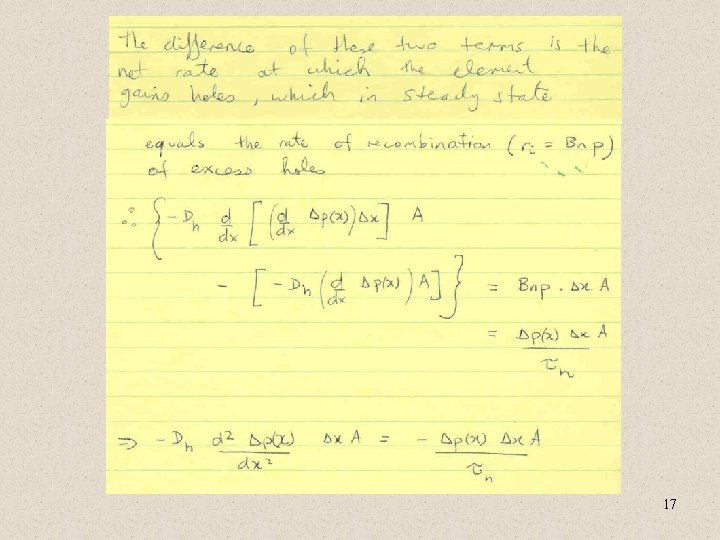 The difference of these two terms is the
net rate at which the element
gains holes, which in steady state
equals the rate of recombination (ri = Bnp)
of excess holes
∴ { -Dh d/dx [ (d/dx Δp(x)) Δx ] A
- [ -Dh (d/dx Δp(x)) A ] } = Bnp . Δx A
= Δp(x) Δx A / τh
⇒ -Dh d² Δp(x) / dx² Δx A = - Δp(x) Δx A / τh
17